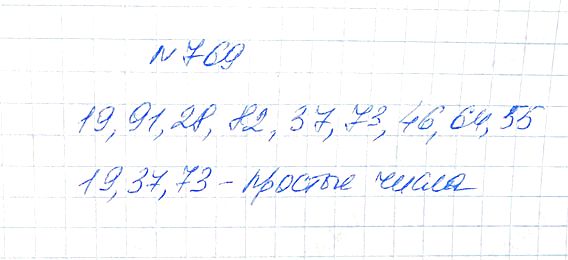 №769
19, 91, 28, 82, 37, 73, 46, 64, 55
19, 37, 73 - простые числа